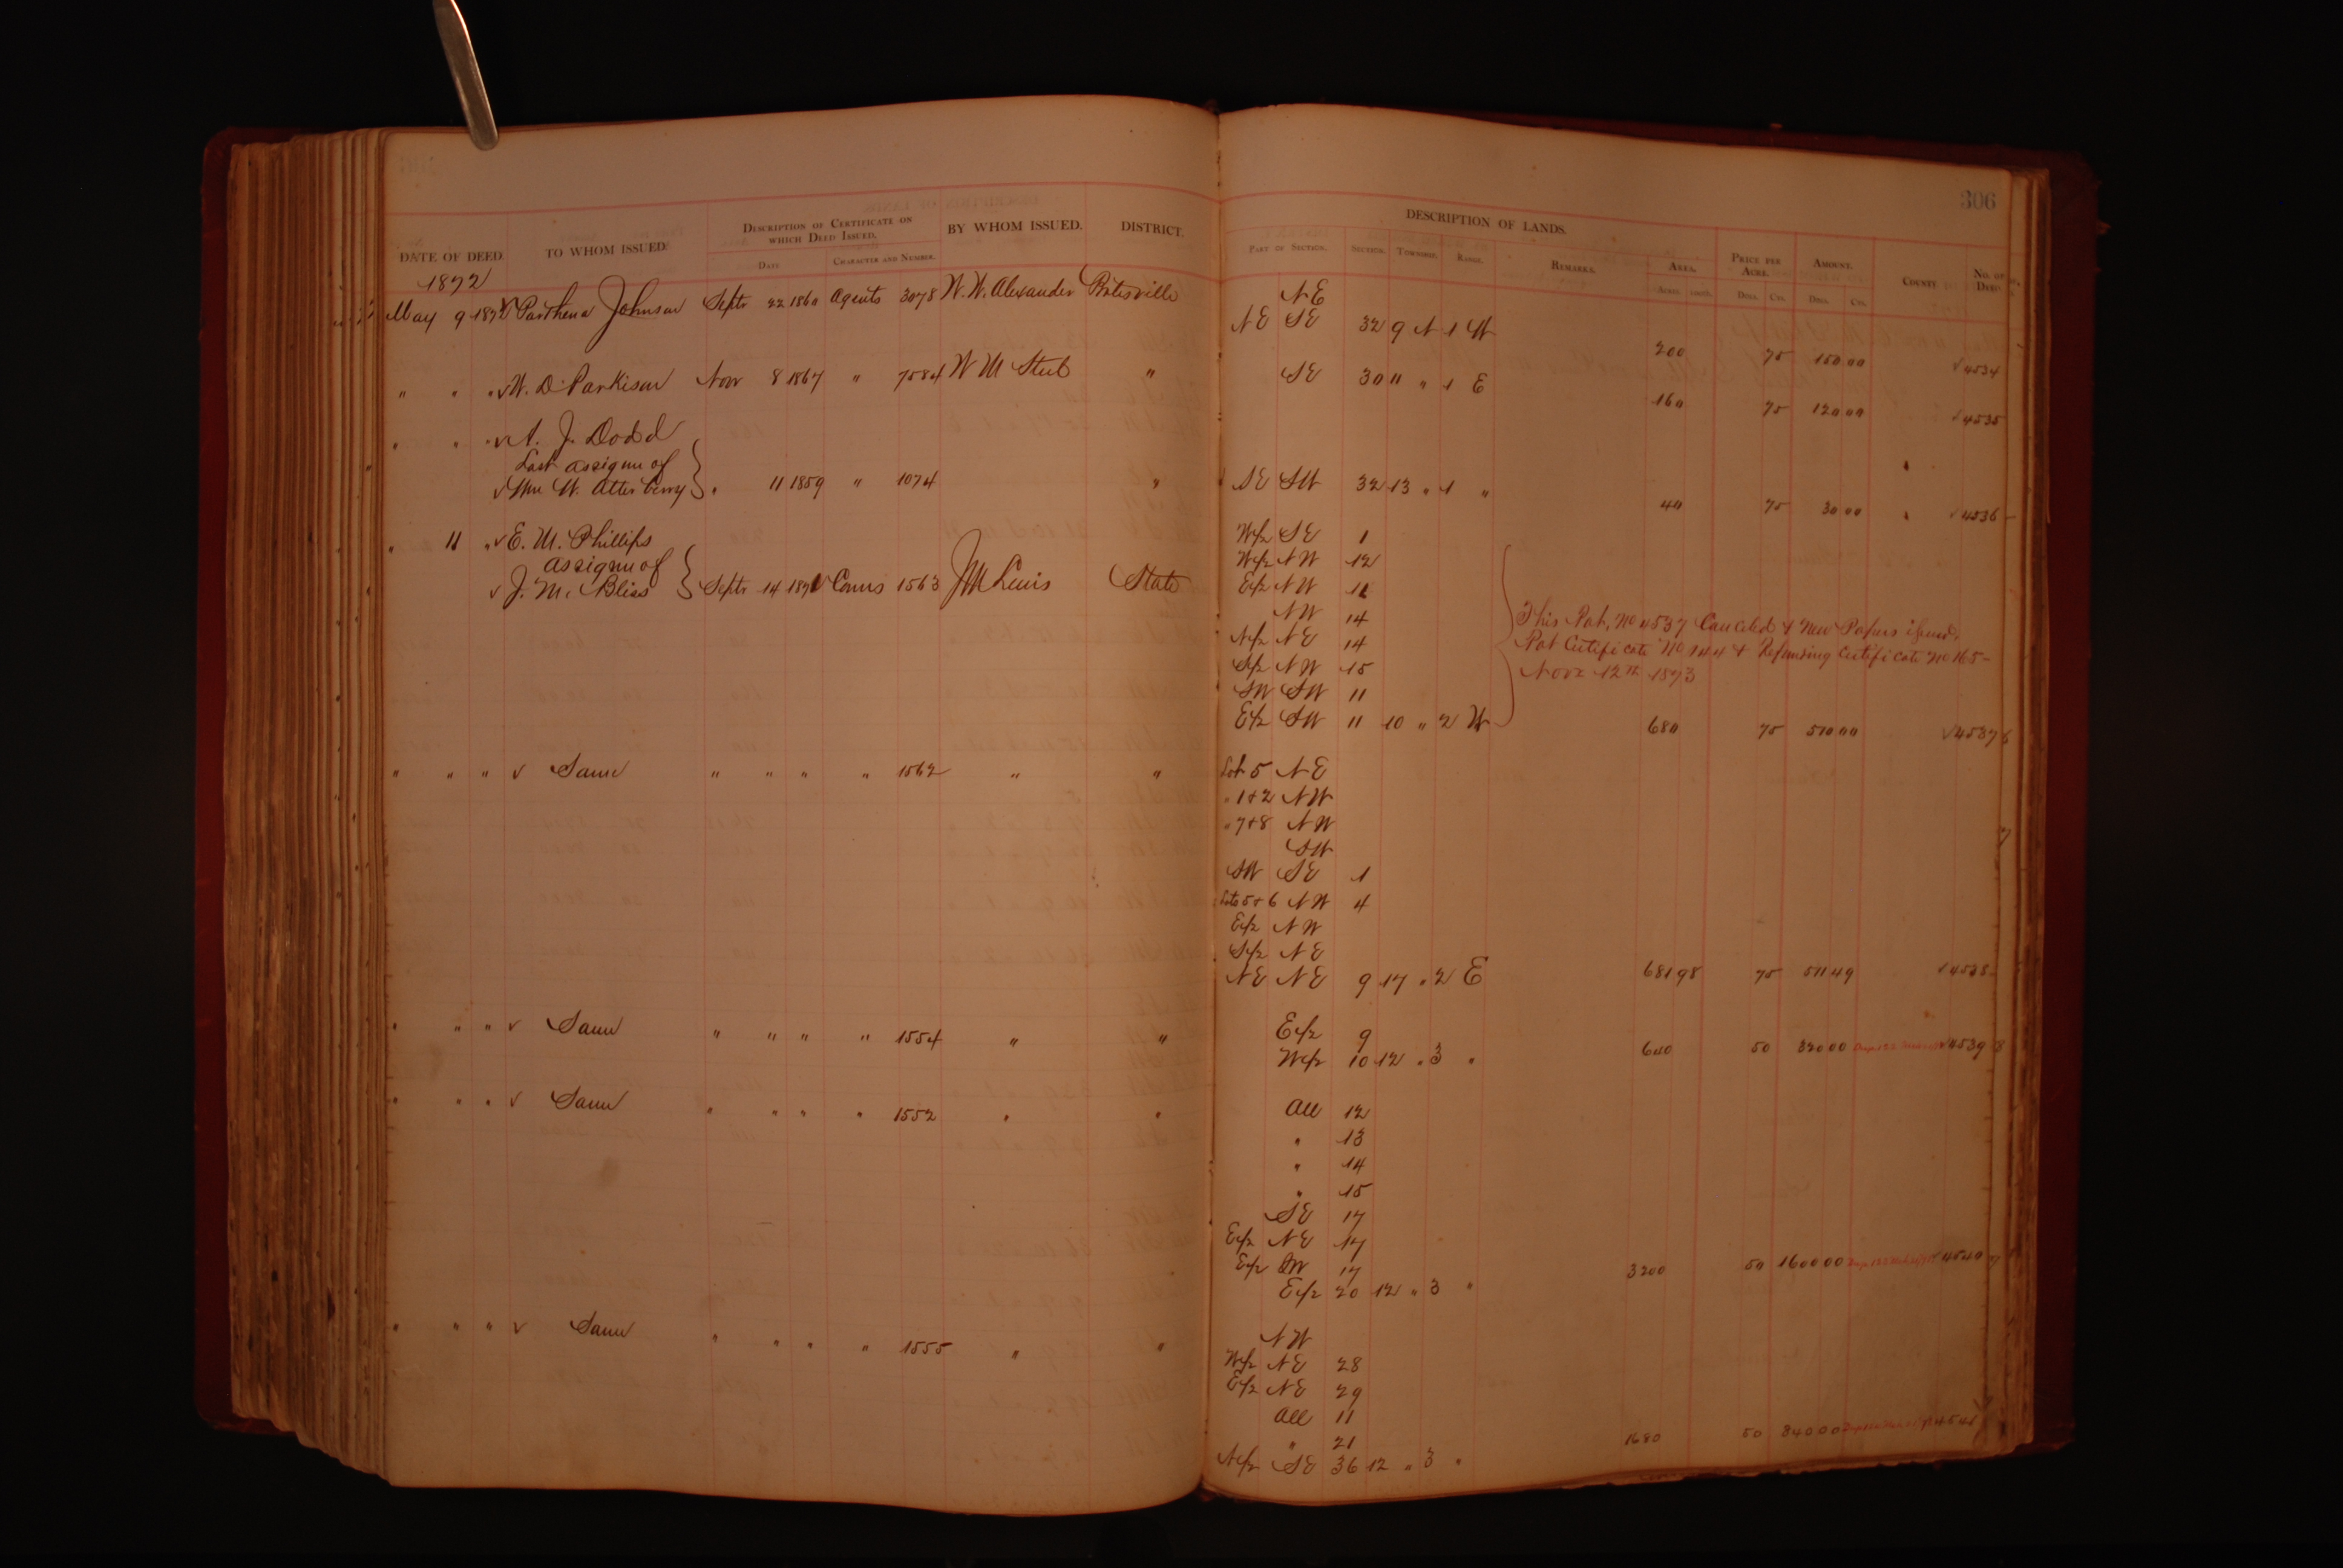 306
DATE OF DEED. TO WHOM ISSUED. DESCRIPTION OF CERTIFICATE ON WHICH DEED ISSUED. BY WHOM ISSUED. DISTRICT. DESCRIPTION OF LANDS.
DATE CHARACTER AND NUMBER. PART OF SECTION. SECTION. TOWNSHIP. RANGE. REMARKS. AREA. PRICE PER ACRE. AMOUNT. COUNTY NO. OF DEED
ACRES 100TH. DOLS. CTS. DOLS. CTS.
1872
NE
May 9 1872 √ Parthena Johnson Septr 22 1860 Agents 3078 W. W. Alexander Batesville NE SE 32 9 N 1 W 200 75 150 00 √ 4534
" " " √ W. D. Parkison Novr 8 1867 " 7584 W M Steel " SE 30 11 " 1 E 160 75 120 00 √ 4535
" " " √ A. J. Dodd
Last assignee of
√ Wm W. Atterberry } " 11 1859 " 1074 " SE SW 32 13 " 1 " 40 75 30 00 √ 4536
" 11 " √ E. M. Phillips W/2 SE 1
assignee of W/2 NW 12
√ J. M. Bliss } Septr 14 1871 √ Comrs 1563 J M Lewis State E/2 NW 11
NW 14
N/2 NE 14
S/2 NW 15
SW SW 11
E/2 SW 11 10 " 2 W 680 75 510 00 √ 4537
This Pat. No 4537 Canceled & New Papers issued.
Pat Certificate No 144 & Refunding Certificate No 165-
Novr 12th 1873
" " " √ Same " " " " 1562 " " Lot 5 NE
" 1+2 NW
" 7+8 NW
SW
SW SE 1
Lots 5+6 NW 4
E/2 NW
S/2 NE
NE NE 9 17 " 2 E 681 98 75 511 49 √ 4538
" " " √ Same " " " " 1554 " " E/2 9
W/2 10 12 " 3 " 640 50 320 00 √ 4539
" " " √ Same " " " " 1552 " " All 12
" 13
" 14
" 15
SE 17
E/2 NE 17
E/2 SW 17
E/2 20 12 " 3 " 3200 50 1600 00 √ 4540
" " " √ Same " " " " 1555 " " NW
W/2 NE 28
E/2 NE 29
All 11
" 21
N/2 SE 36 12 " 3 " 1680 50 840 00 √ 4541